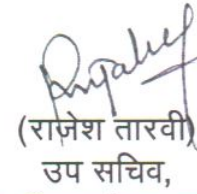 (राजेश तारवी)
उप सचिव,